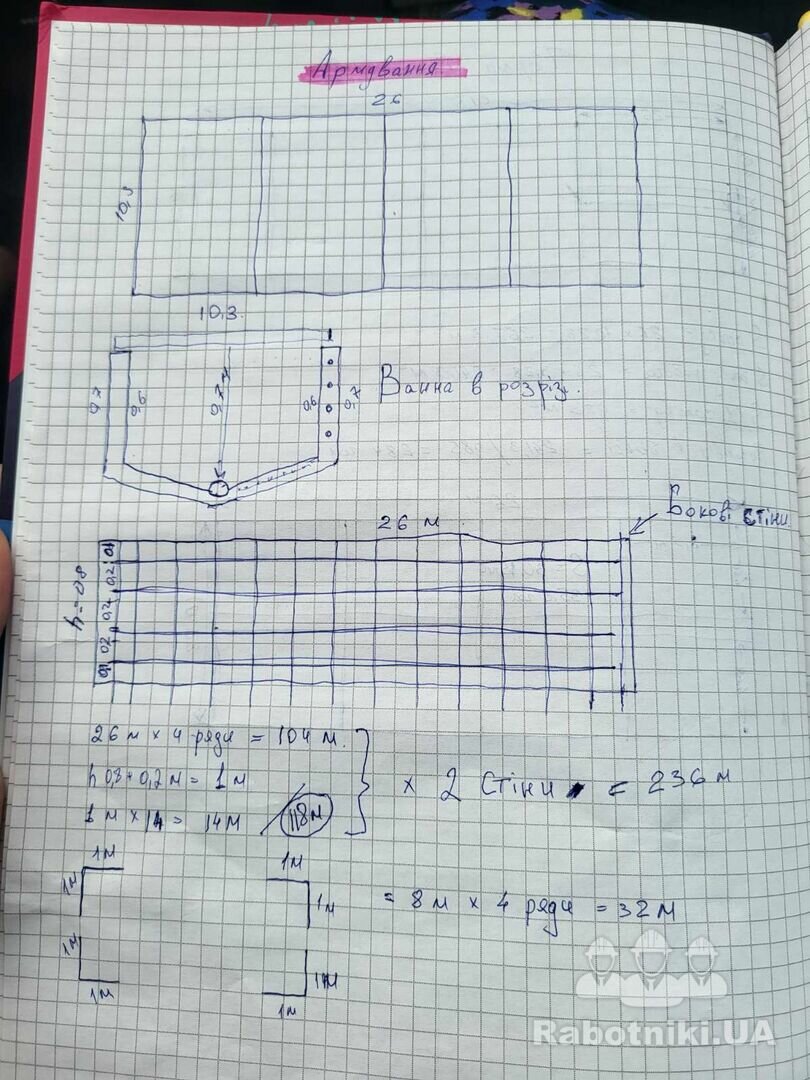 Армування
26
10,3
10,3
0,7
0,6
0,6
0,7
Ванна в розрізі.
26 м
Бокові стіни
h = 0,8
0,1
0,2
0,2
0,2
0,1
26 м х 4 ряди = 104 м.
h 0,8 + 0,2 м = 1 м
1 м х 14 = 14 м
118м
х 2 стіни = 236 м
1м
1м
1м
1м
= 8 м х 4 ряди = 32 м
1м
1м
1м
1м
Rabotniki.UA